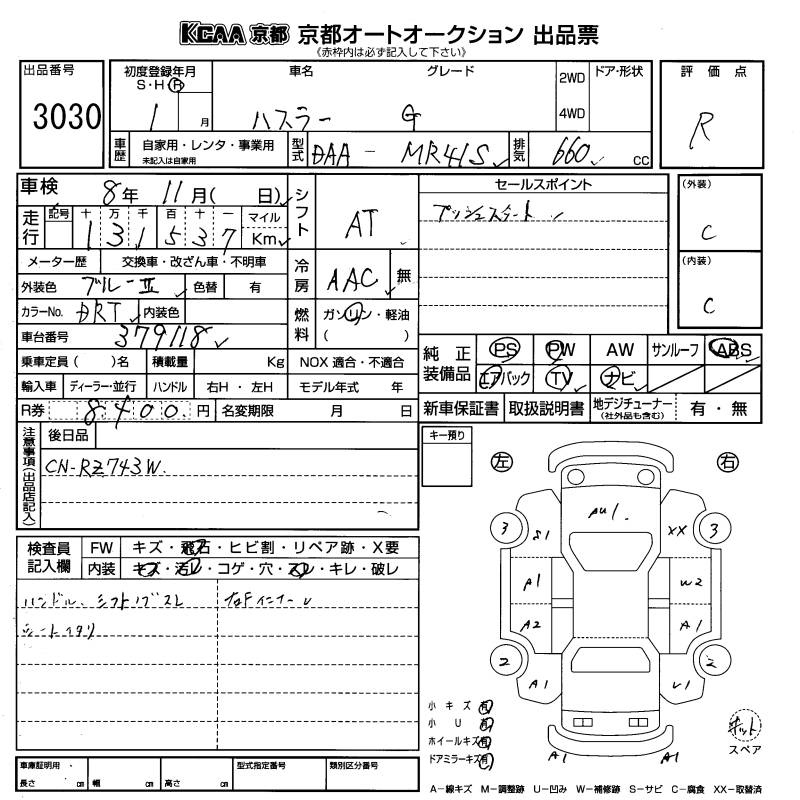 KCAA 京都 京都オートオークション 出品票
《赤枠内は必ず記入して下さい》
出品番号 3030
初度登録年月 S・H・R 1 月
車名 ハスラー グレード G
2WD 4WD
ドア・形状
評価点 R
車歴 自家用・レンタ・事業用 未記入は自家用
型式 DAA - MR41S
排気 660 cc
車検 8年 11月( 日)
走行 記号 十 万 千 百 十 一 マイル Km
131537
メーター歴 交換車・改ざん車・不明車
外装色 ブルーⅡ 色替 有
カラーNo. DRT 内装色
車台番号 379118
乗車定員( )名 積載量 Kg NOX 適合・不適合
輸入車 ディーラー・並行 ハンドル 右H・左H モデル年式 年
R券 8400. 円 名変期限 月 日
シフト AT
冷房 AAC 無
燃料 ガソリン・軽油
( )
セールスポイント
プッシュスタート
(外装) C
(内装) C
純正装備品 PS PW AW サンルーフ ABS
エアバック TV ナビ
新車保証書 取扱説明書 地デジチューナー (社外品も含む) 有・無
注意事項(出品店記入)
後日品
CN-RZ743W.
キー預り
左 右
検査員記入欄
FW キズ・飛石・ヒビ割・リペア跡・X要
内装 キズ・汚レ・コゲ・穴・スレ・キレ・破レ
ハンドル、シフトノブスレ
シートヘタリ
AU1.
3 S1 XX 3
A1 W2
A2 A1
2 A1 U1 2
A1 A1
小キズ 有
小U 有
ホイールキズ 有
ドアミラーキズ 有
スペア
車庫証明用
長さ cm 幅 cm 高さ cm
型式指定番号 類別区分番号
A－線キズ M－調整跡 U－凹み W－補修跡 S－サビ C－腐食 XX－取替済